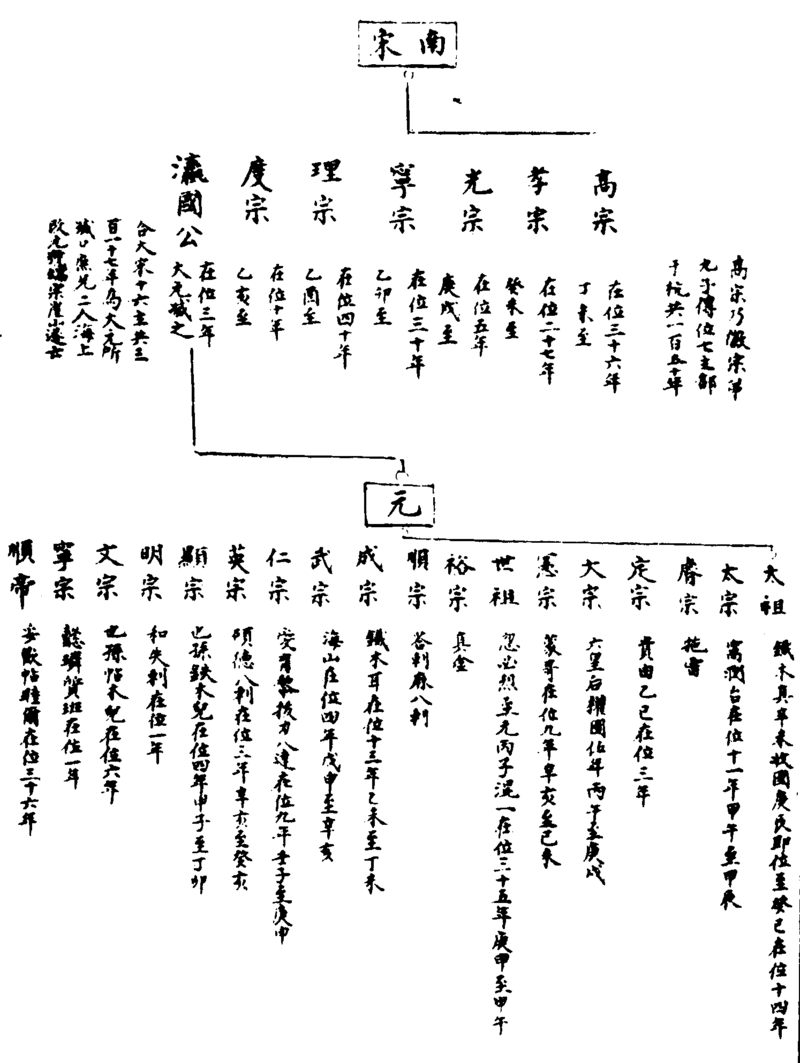 南宋
高宗乃徽宗第
九子傳位七主都
于杭共一百五十年
高宗
丁未至
在位三十六年
孝宗
癸未至
在位二十七年
光宗
庚戌至
在位五年
寧宗
乙卯至
在位三十年
理宗
乙酉至
在位四十年
度宗
乙亥至
在位十年
瀛國公
在位三年
大元滅之
合大宋十六主共三
百一十七年為大元所
滅 庶兄二人海上
改元 崖山遂亡
元
太祖
鐵木真辛未收國庚戌即位至癸巳在位十四年
太宗
窩濶台在位十一年甲午至甲辰
睿宗
拖雷
定宗
貴由乙巳在位三年
大宗
六皇后攝國 年丙午至庚戌
憲宗
蒙哥在位九年辛亥至己未
世祖
忽必烈至元丙子混一在位三十五年庚申至甲午
裕宗
真金
順宗
答利麻八利
成宗
鐵木耳在位十三年乙未至丁未
武宗
海山在位四年戊申至辛亥
仁宗
愛育黎拔力八達在位九年壬子至庚申
英宗
碩德八利在位三年辛亥至癸亥
顯宗
也孫鉄木兒在位四年甲子至丁卯
明宗
和失利在位一年
文宗
也孫帖木兒在位六年
寧宗
懿璘質班在位一年
順帝
妥歡帖睦爾在位三十六年